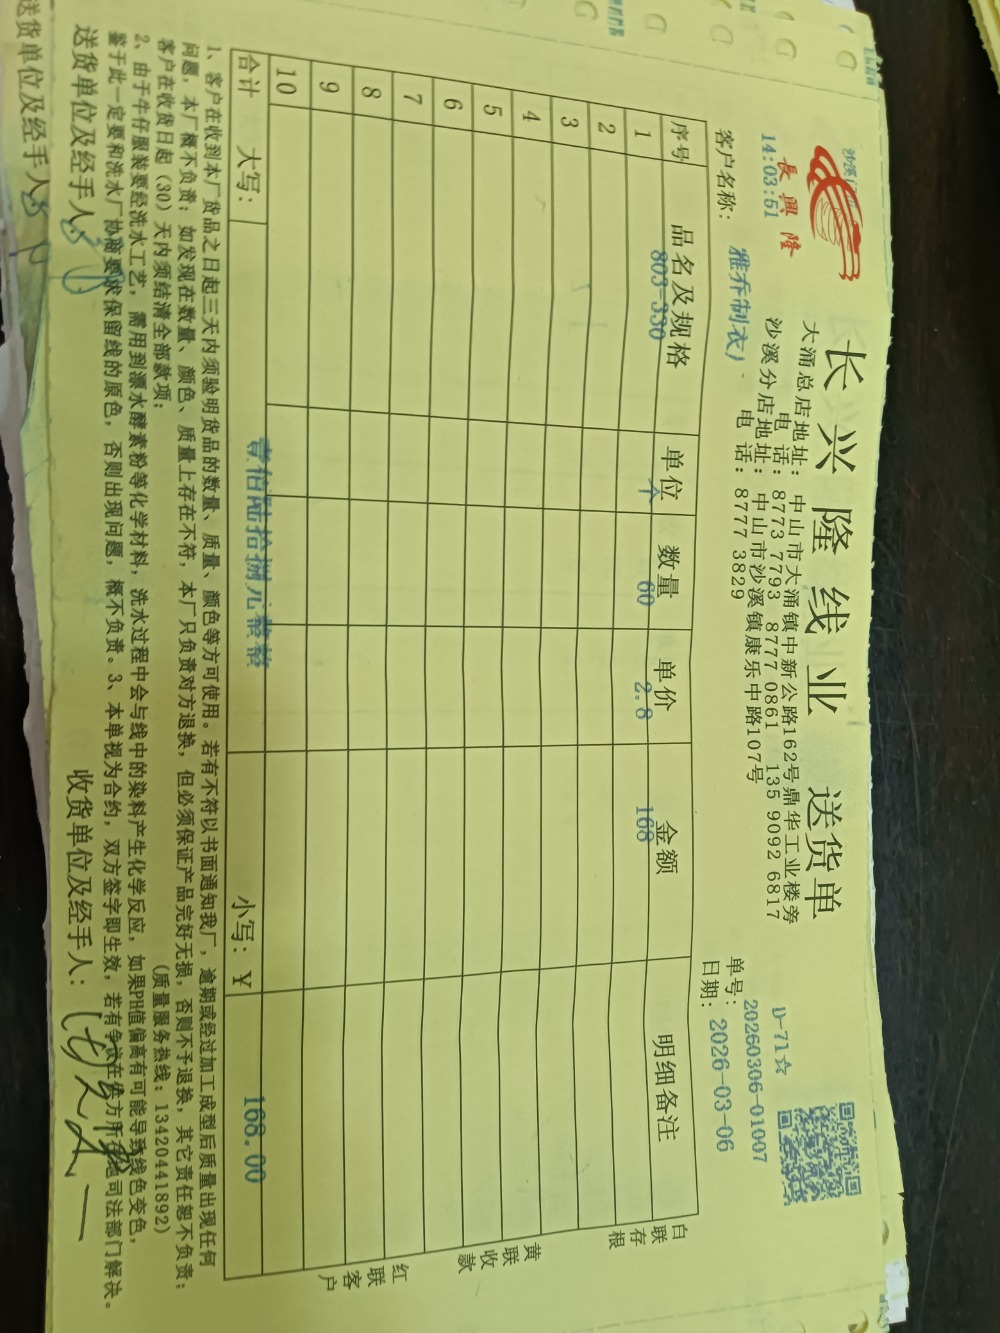 长兴隆线业 送货单
長興隆
14:03:51
大涌总店地址：中山市大涌镇中新公路162号鼎华工业楼旁
电 话：8773 7793 8777 0861 135 9092 6817
沙溪分店地址：中山市沙溪镇康乐中路107号
电 话：8777 3829
D-71☆
单号：20260306-01007
日期：2026-03-06
客户名称：雅乔制衣厂
序号 品名及规格 单位 数量 单价 金额 明细备注
1 803-330 个 60 2.8 168
2
3
4
5
6
7
8
9
10
合计 大写：壹佰陆拾捌元整整 小写：¥ 168.00
白联存根
黄联收款
红联客户
1、客户在收到本厂货品之日起三天内须验明货品的数量、质量、颜色等方可使用。若有不符以书面通知我厂，逾期或经过加工成型后质量出现任何
问题，本厂概不负责；如发现在数量、颜色、质量上存在不符，本厂只负责对方退换，但必须保证产品完好无损，否则不予退换，其它责任恕不负责；
客户在收货日起（30）天内须结清全部款项； （质量服务热线：13420441892）
2、由于牛仔服装要经洗水工艺，需用到漂水酵素粉等化学材料，洗水过程中会与线中的染料产生化学反应，如果PH值偏高有可能导致线色变色，
鉴于此一定要和洗水厂协商要求保留线的原色，否则出现问题，概不负责。3、本单视为合约，双方签字即生效，若有争议在供方所在地司法部门解决。
送货单位及经手人： 收货单位及经手人：
送货单位及经手人